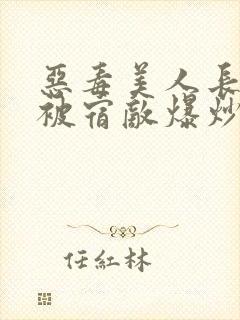 惡毒美人長
被宿敵爆炒
任紅林